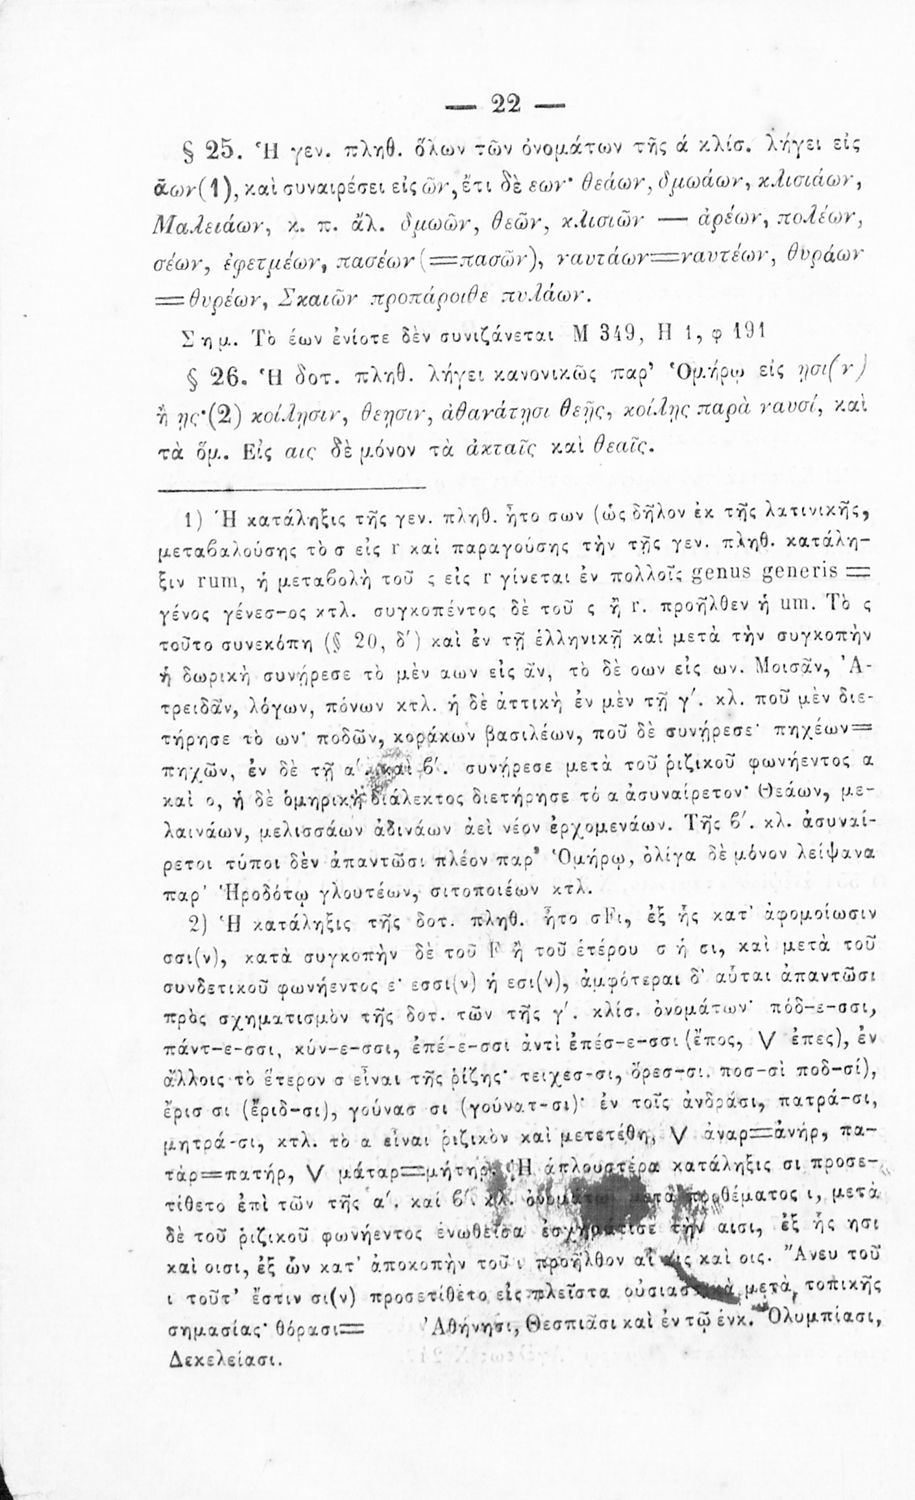 — 22 —
§ 25. Ἡ γεν. πληθ. ὅλων τῶν ὀνομάτων τῆς ά κλίσ. λήγει εἰς
ᾱων(1), καὶ συναιρέσει εἰς ῶν, ἔτι δὲ εων· θεάων, δμωάων, κλισιάων,
Μαλειάων, κ. π. ἄλ. δμωῶν, θεῶν, κλισιῶν — ἀρέων, πολέων,
σέων, ἐφετμέων, πασέων (=πασῶν), ναυτάων=ναυτέων, θυράων
=θυρέων, Σκαιῶν προπάροιθε πυλάων.
Σημ. Τὸ έων ἐνίοτε δὲν συνιζάνεται Μ 349, Η 1, φ 191
§ 26. Ἡ δοτ. πληθ. λήγει κανονικῶς παρ' Ὁμήρῳ εἰς ῃσι(ν)
ἢ ῃς·(2) κοίλῃσιν, θεῃσιν, ἀθανάτῃσι θεῇς, κοίλῃς παρὰ ναυσί, καὶ
τὰ ὅμ. Εἰς αις δὲ μόνον τὰ ἀκταῖς καὶ θεαῖς.
1) Ἡ κατάληξις τῆς γεν. πληθ. ἦτο σων (ὡς δῆλον ἐκ τῆς λατινικῆς,
μεταβαλούσης τὸ σ εἰς r καὶ παραγούσης τὴν τῆς γεν. πληθ. κατάλη-
ξιν rum, ἡ μεταβολὴ τοῦ ς εἰς r γίνεται ἐν πολλοῖς genus generis =
γένος γένεσ-ος κτλ. συγκοπέντος δὲ τοῦ ς ἢ r. προῆλθεν ἡ um. Τὸ ς
τοῦτο συνεκόπη (§ 20, δ') καὶ ἐν τῇ ἑλληνικῇ καὶ μετὰ τὴν συγκοπὴν
ἡ δωρικὴ συνῄρεσε τὸ μὲν αων εἰς ᾶν, τὸ δὲ οων εἰς ων. Μοισᾶν, Ἀ-
τρειδᾶν, λόγων, πόνων κτλ. ἡ δὲ ἀττικὴ ἐν μὲν τῇ γ'. κλ. ποῦ μὲν διε-
τήρησε τὸ ων· ποδῶν, κοράκων βασιλέων, ποῦ δὲ συνῄρεσε· πηχέων=
πηχῶν, ἐν δὲ τῇ α'. καὶ β'. συνῄρεσε μετὰ τοῦ ῥιζικοῦ φωνήεντος α
καὶ ο, ἡ δὲ ὁμηρικὴ διάλεκτος διετήρησε τό α ἀσυναίρετον· Θεάων, με-
λαινάων, μελισσάων ἀδινάων ἀεὶ νέον ἐρχομενάων. Τῆς β'. κλ. ἀσυναί-
ρετοι τύποι δὲν ἀπαντῶσι πλέον παρ' Ὁμήρῳ, ὀλίγα δὲ μόνον λείψανα
παρ' Ἡροδότῳ γλουτέων, σιτοποιέων κτλ.
2) Ἡ κατάληξις τῆς δοτ. πληθ. ἦτο σFι, ἐξ ἧς κατ' ἀφομοίωσιν
σσι(ν), κατὰ συγκοπὴν δὲ τοῦ F ἢ τοῦ ἑτέρου σ ἡ σι, καὶ μετὰ τοῦ
συνδετικοῦ φωνήεντος ε· εσσι(ν) ἡ εσι(ν), ἀμφότεραι δ' αὗται ἀπαντῶσι
πρὸς σχηματισμὸν τῆς δοτ. τῶν τῆς γ'. κλίσ. ὀνομάτων· πόδ-ε-σσι,
πάντ-ε-σσι, κύν-ε-σσι, ἐπέ-ε-σσι ἀντὶ ἐπέσ-ε-σσι (ἔπος, √ ἐπες), ἐν
ἄλλοις τὸ ἕτερον σ εἶναι τῆς ῥίζης· τειχεσ-σι, ὄρεσ-σι. ποσ-σὶ ποδ-σί),
ἔρισ σι (ἔριδ-σι), γούνασ σι (γούνατ-σι)· ἐν τοῖς ἀνδράσι, πατρά-σι,
μητρά-σι, κτλ. τὸ α εἶναι ῥιζικὸν καὶ μετετέθη, √ ἀναρ=ἀνήρ, πα-
τὰρ=πατήρ, √ μάταρ=μήτηρ. Ἡ ἁπλουστέρα κατάληξις σι προσε-
τίθετο ἐπὶ τῶν τῆς α'. καί β'. κλ. ὀνομάτων μετὰ προθέματος ι, μετὰ
δὲ τοῦ ῥιζικοῦ φωνήεντος ἑνωθεῖσα ἐσχημάτισε τὴν αισι, ἐξ ἧς ῃσι
καὶ οισι, ἐξ ὧν κατ' ἀποκοπὴν τοῦ ι προῆλθον αἱ αις καὶ οις. Ἄνευ τοῦ
ι τοῦτ' ἔστιν σι(ν) προσετίθετο εἰς πλεῖστα οὐσιαστικὰ μετὰ τοπικῆς
σημασίας· θύρασι= Ἀθήνησι, Θεσπιᾶσι καὶ ἐν τῷ ἑνκ. Ὀλυμπίασι,
Δεκελείασι.